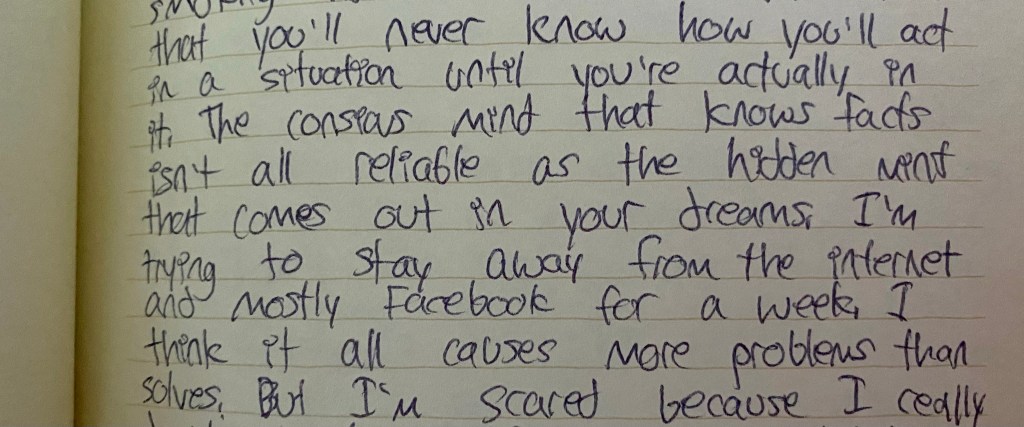 smoking
that you'll never know how you'll act
in a situation until you're actually in
it. The consias mind that knows facts
isn't all reliable as the hidden mind
that comes out in your dreams. I'm
trying to stay away from the internet
and mostly Facebook for a week. I
think it all causes more problems than
solves. But I'm scared because I really